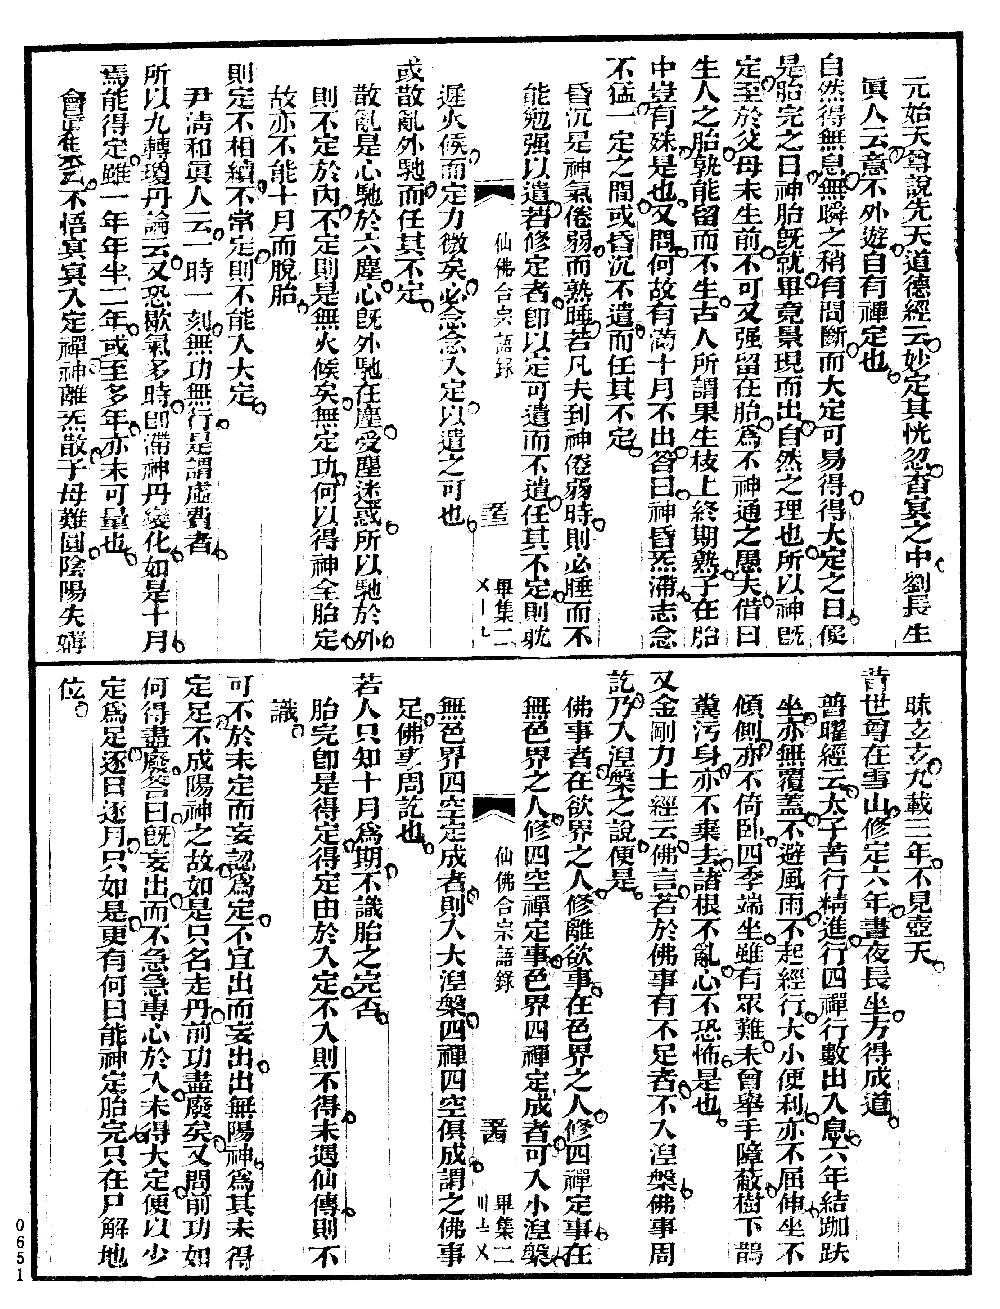 元始天尊說先天道德經云妙定其恍忽杳冥之中劉長生
眞人云意不外遊自有禪定也
自然得無息無瞬之稍有間斷而大定可易得得大定之日候
是胎完之日神胎旣就畢竟景現而出自然之理也所以神旣
定至於父母未生前不可又强留在胎爲不神通之愚夫借曰
生人之胎孰能留而不生古人所謂果生枝上終期熟子在胎
中豈有殊是也又問何故有滿十月不出答曰神昏炁滯志念
不猛一定之間或昏沉不遣而任其不定
昏沉是神氣倦弱而熟睡若凡夫到神倦弱時則必睡而不
能勉强以遣若修定者卽以定可遣而不遣任其不定則耽
仙佛合宗語錄
畢集二
遲火候而定力微矣必念念入定以遣之可也
或散亂外馳而任其不定
散亂是心馳於六塵心旣外馳在塵受塵迷惑所以馳於外
則不定於內不定則是無火候矣無定功何以得神全胎定
故亦不能十月而脫胎
則定不相續不常定則不能入大定
尹淸和眞人云一時一刻無功無行是謂虛費者
所以九轉瓊丹論云又恐歇氣多時卽滯神丹變化如是十月
焉能得定雖一年年半二年或至多年亦未可量也
不悟冥冥入定禪神離炁散子母難圓陰陽失媾
昧立立九載三年不見壺天
昔世尊在雪山修定六年晝夜長坐方得成道
普曜經云太子苦行精進行四禪行數出入息六年結跏趺
坐亦無覆蓋不避風雨不起經行大小便利亦不屈伸坐不
傾側亦不倚卧四季端坐雖有眾難未曾舉手障蔽樹下鵲
糞污身亦不棄去諸根不亂心不恐怖是也
又金剛力士經云佛言若於佛事有不足者不入湼槃佛事周
訖乃入湼槃之說便是
佛事者在欲界之人修離欲事在色界之人修四禪定事在
無色界之人修四空禪定事色界四禪定成者可入小湼槃
仙佛合宗語錄
畢集二
無色界四空定成者則入大湼槃四禪四空俱成謂之佛事
足佛事周訖也
若人只知十月爲期不識胎之完否
胎完卽是得定得定由於入定不入則不得未遇仙傳則不
識
可不於未定而妄認爲定不宜出而妄出出無陽神爲其未得
定足不成陽神之故如是只名走丹前功盡廢矣又問前功如
何得盡廢答曰旣妄出而不急急專心於入未得大定便以少
定爲足逐日逐月只如是更有何日能神定胎完只在尸解地
位
0651